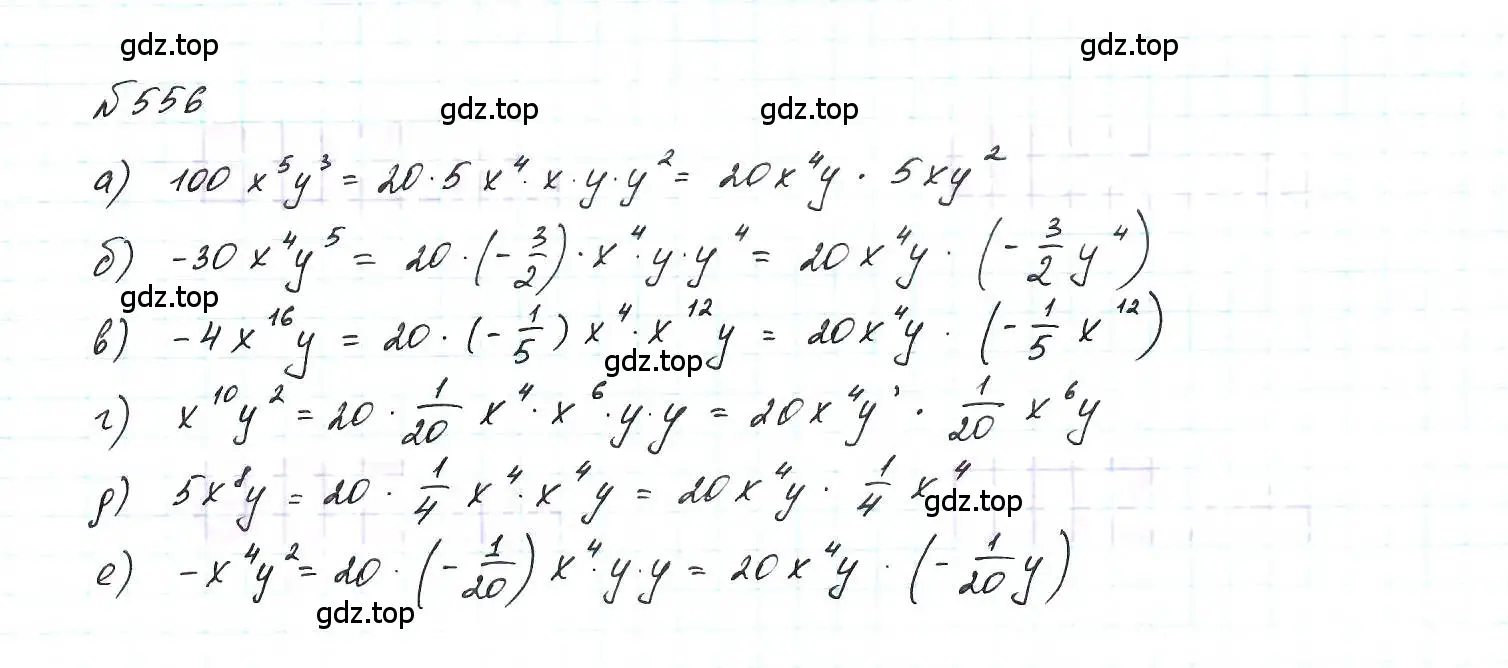 gdz.top gdz.top
№556
gdz.top gdz.top
а) 100 x⁵y³ = 20·5 x⁴·x·y·y² = 20x⁴y · 5xy²
б) -30 x⁴y⁵ = 20·(-3/2)·x⁴·y·y⁴ = 20x⁴y · (-3/2 y⁴)
gdz.top
в) -4x¹⁶y = 20·(-1/5) x⁴·x¹²y = 20x⁴y · (-1/5 x¹²)
gdz.top
г) x¹⁰y² = 20 · 1/20 x⁴·x⁶·y·y = 20x⁴y · 1/20 x⁶y
д) 5x⁸y = 20 · 1/4 x⁴·x⁴y = 20x⁴y · 1/4 x⁴
gdz.top
е) -x⁴y² = 20 · (-1/20) x⁴·y·y = 20x⁴y · (-1/20 y)
gdz.top